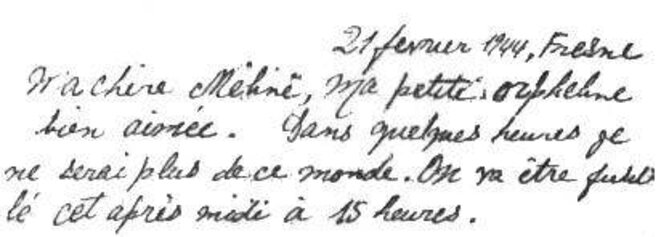 21 fevrier 1944, Fresne
Ma chère Méliné, ma petite orpheline
bien aimée. Dans quelques heures je
ne serai plus de ce monde. On va être fusil
lé cet après midi à 15 heures.